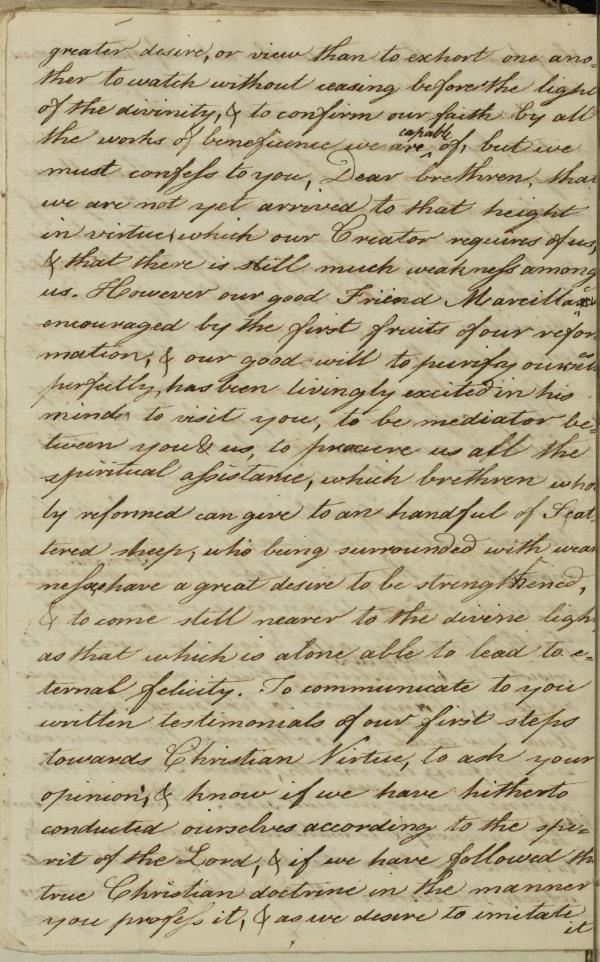 greater desire, or view than to exhort one ano=
ther to watch without ceasing before the light
of the divinity, & to confirm our faith by all
the works of beneficience we are capable of, but we
must confess to you, Dear brethren, that
we are not yet arrived to that height
in virtue, which our Creator requires of us,
& that there is still much weakness among
us. However our good Friend Marcillac
encouraged by the first fruits of our refor
mation, & our good will to purify ourselves
perfectly, has been livingly excited in his
mind to visit you, to be mediator be=
tween you & us, to procure us all the
spiritual assistance, which brethren who
ly reformed can give to an handful of Scat
tered sheep, who being surrounded with weak
nesses have a great desire to be strengthened,
& to come still nearer to the divine light
as that which is alone able to lead to e=
ternal felicity. To communicate to you
written testimonials of our first steps
towards Christian Virtue, to ask your
opinion, & know if we have hitherto
conducted ourselves according to the spi=
rit of the Lord, & if we have followed the
true Christian doctrine in the manner
you profess it, & as we desire to imitate
it